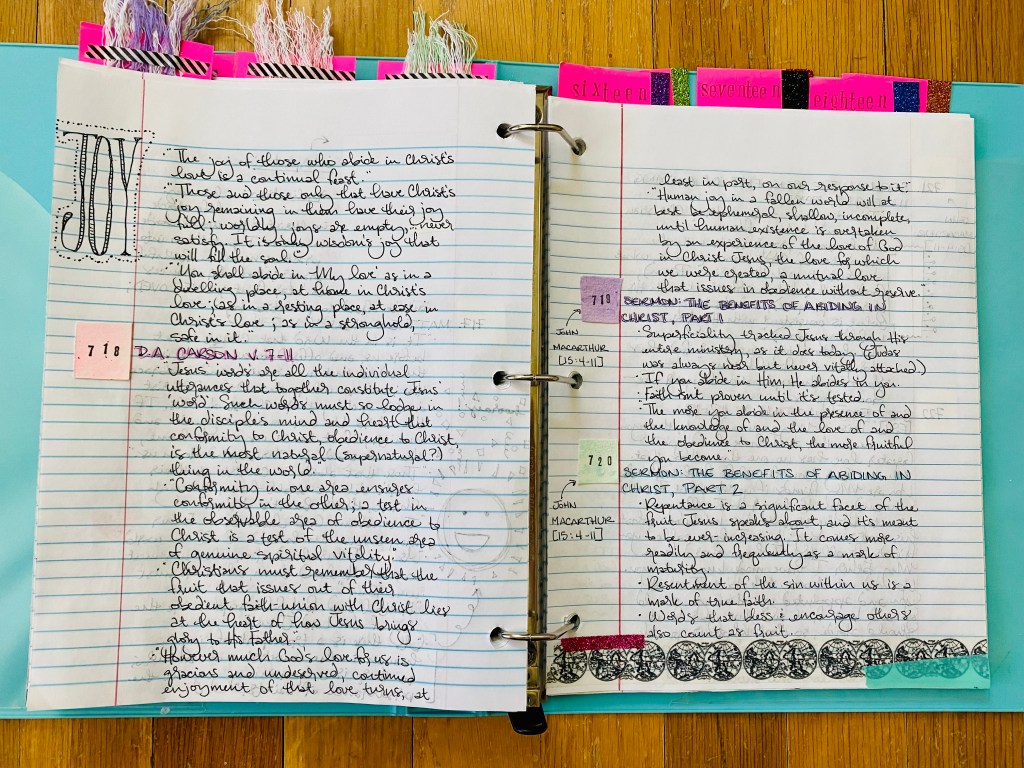 sixteen
seventeen
eighteen
JOY
"The joy of those who abide in Christ's
love is a continual feast."
"Those and those only that have Christ's
joy remaining in them have their joy
full; worldly joys are empty, never
satisfy. It is only wisdom's joy that
will fill the soul."
"You shall abide in 'My love' as in a
dwelling place, at home in Christ's
love; as in a resting place, at ease in
Christ's love; as in a stronghold,
safe in it."
718
D.A. CARSON V. 7-11
"Jesus' words are all the individual
utterances that together constitute Jesus'
'word'. Such words must so lodge in
the disciple's mind and heart that
conformity to Christ, obedience to Christ,
is the most natural (supernatural?)
thing in the world."
"Conformity in one area ensures
conformity in the other; a test in
the observable area of obedience to
Christ is a test of the unseen area
of genuine spiritual vitality."
"Christians must remember that the
fruit that issues out of their
obedient faith-union with Christ lies
at the heart of how Jesus brings
glory to His Father."
"However much God's love for us is
gracious and undeserved, continued
enjoyment of that love turns, at
least in part, on our response to it."
"Human joy in a fallen world will at
best be ephemeral, shallow, incomplete,
until human existence is overtaken
by an experience of the love of God
in Christ Jesus, the love for which
we were created, a mutual love
that issues in obedience without reserve."
719
SERMON: THE BENEFITS OF ABIDING IN
CHRIST, PART 1
JOHN
MACARTHUR
[15:4-11]
· Superficiality tracked Jesus through His
entire ministry, as it does today (Judas
was always near but never vitally attached.)
· If you abide in Him, He abides in you.
· Faith isn't proven until it's tested.
· "The more you abide in the presence of and
the knowledge of and the love of and
the obedience to Christ, the more fruitful
you become."
720
SERMON: THE BENEFITS OF ABIDING IN
CHRIST, PART 2
JOHN
MACARTHUR
[15:4-11]
· Repentance is a significant facet of the
fruit Jesus speaks about, and it's meant
to be ever-increasing. It comes more
readily and frequently as a mark of
maturity.
· Resentment of the sin within us is a
mark of true faith.
· Words that bless & encourage others
also count as fruit.